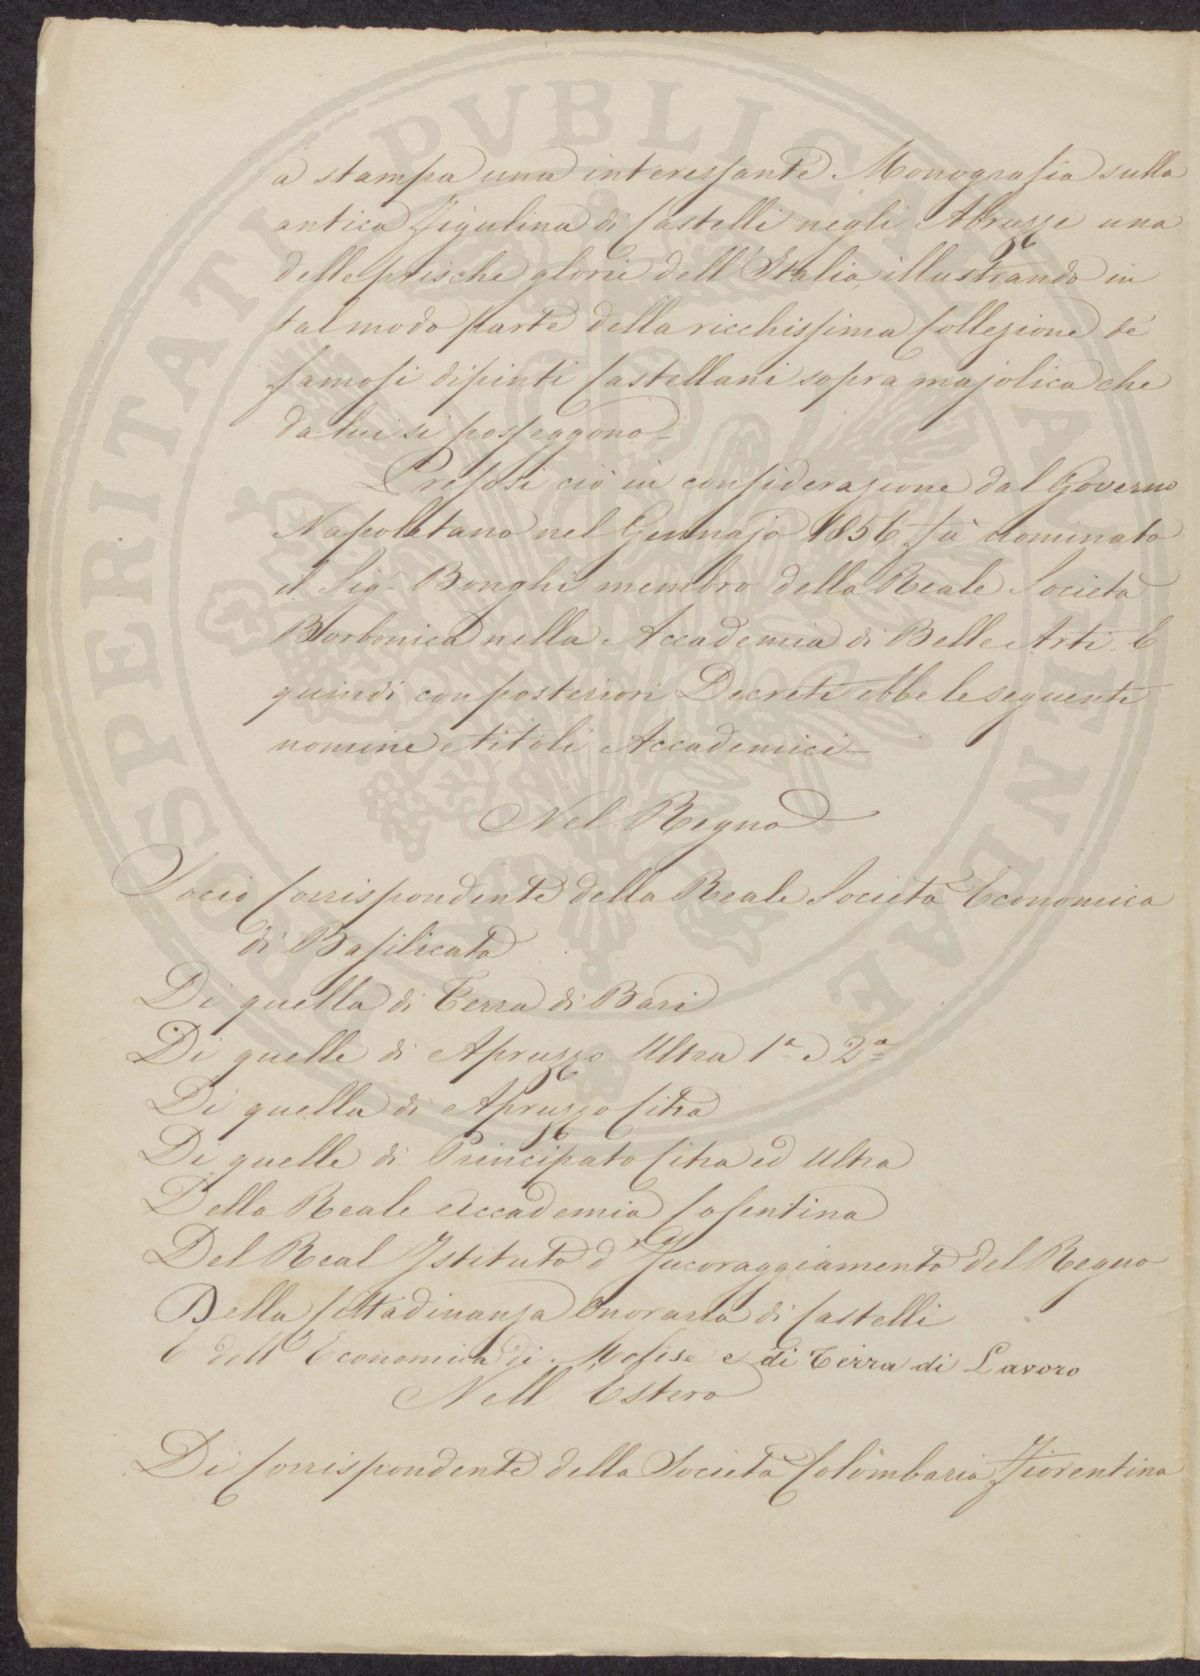 a stampa una interessante Monografia sulla
antica figulina di Castelli negli Abruzzi una
delle prische glorie dell'Italia, illustrando in
tal modo parte della ricchissima Collezione de'
famosi dipinti Castellani sopra majolica che
da lui si posseggono_
Presosi ciò in considerazione dal Governo
Napoletano nel Gennajo 1856 fù nominato
il Sig. Bonghi membro della Reale Società
Borbonica nella Accademia di Belle Arti. E
quindi con posteriori Decreti ebbe le seguenti
nomine e titoli Accademici_
Nel Regno
Socio Corrispondente della Reale Società Economica
di Basilicata
Di quella di Terra di Bari
Di quelle di Apruzzo Ultra 1ª e 2ª
Di quella di Apruzzo Citra
Di quelle di Principato Citra ed Ultra
Della Reale Accademia Cosentina
Del Real Istituto d'Incoraggiamento del Regno
Della Cittadinanza Onoraria di Castelli
E dell'Economica di Molise e di Terra di Lavoro
Nell'Estero
Di Corrispondente della Società Colombaria Fiorentina
PROSPERITATI PVBLICAE AVGENDAE